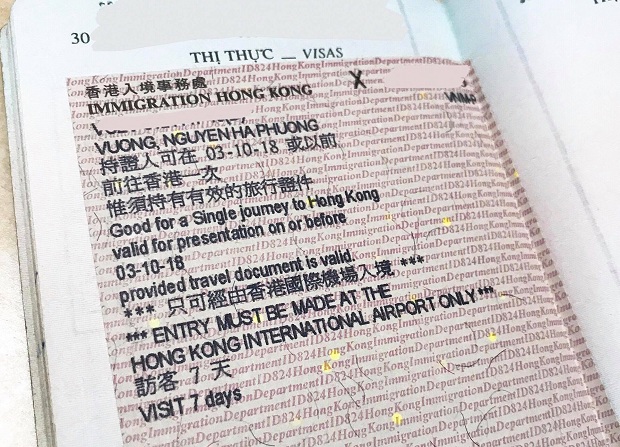 30
THỊ THỰC — VISAS
香港入境事務處
IMMIGRATION HONG KONG
X
VUONG, NGUYEN HA PHUONG
持證人可在 03-10-18 或以前
前往香港一次
惟須持有有效的旅行證件
Good for a Single journey to Hong Kong
valid for presentation on or before
03-10-18
provided travel document is valid.
*** 只可經由香港國際機場入境 ***
*** ENTRY MUST BE MADE AT THE
HONG KONG INTERNATIONAL AIRPORT ONLY ***
訪客 7 天
VISIT 7 days